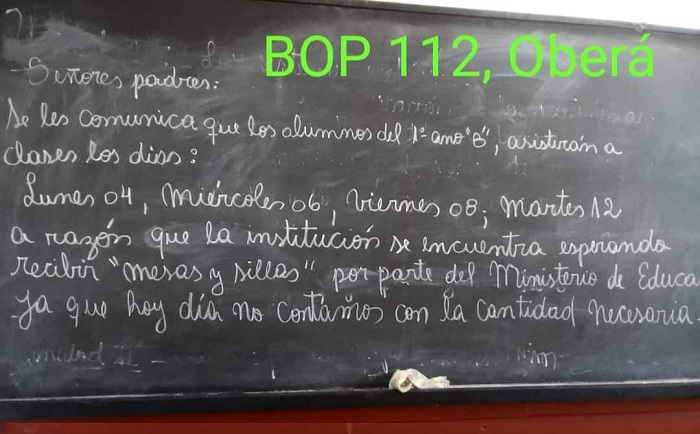 BOP 112, Oberá
Señores padres:
Se les comunica que los alumnos del 1º año "B", asistirán a
clases los dias:
Lunes 04, Miércoles 06, Viernes 08; Martes 12
a razón que la institución se encuentra esperando
recibir "mesas y sillas" por parte del Ministerio de Educa
ya que hoy día no contamos con la cantidad necesaria.